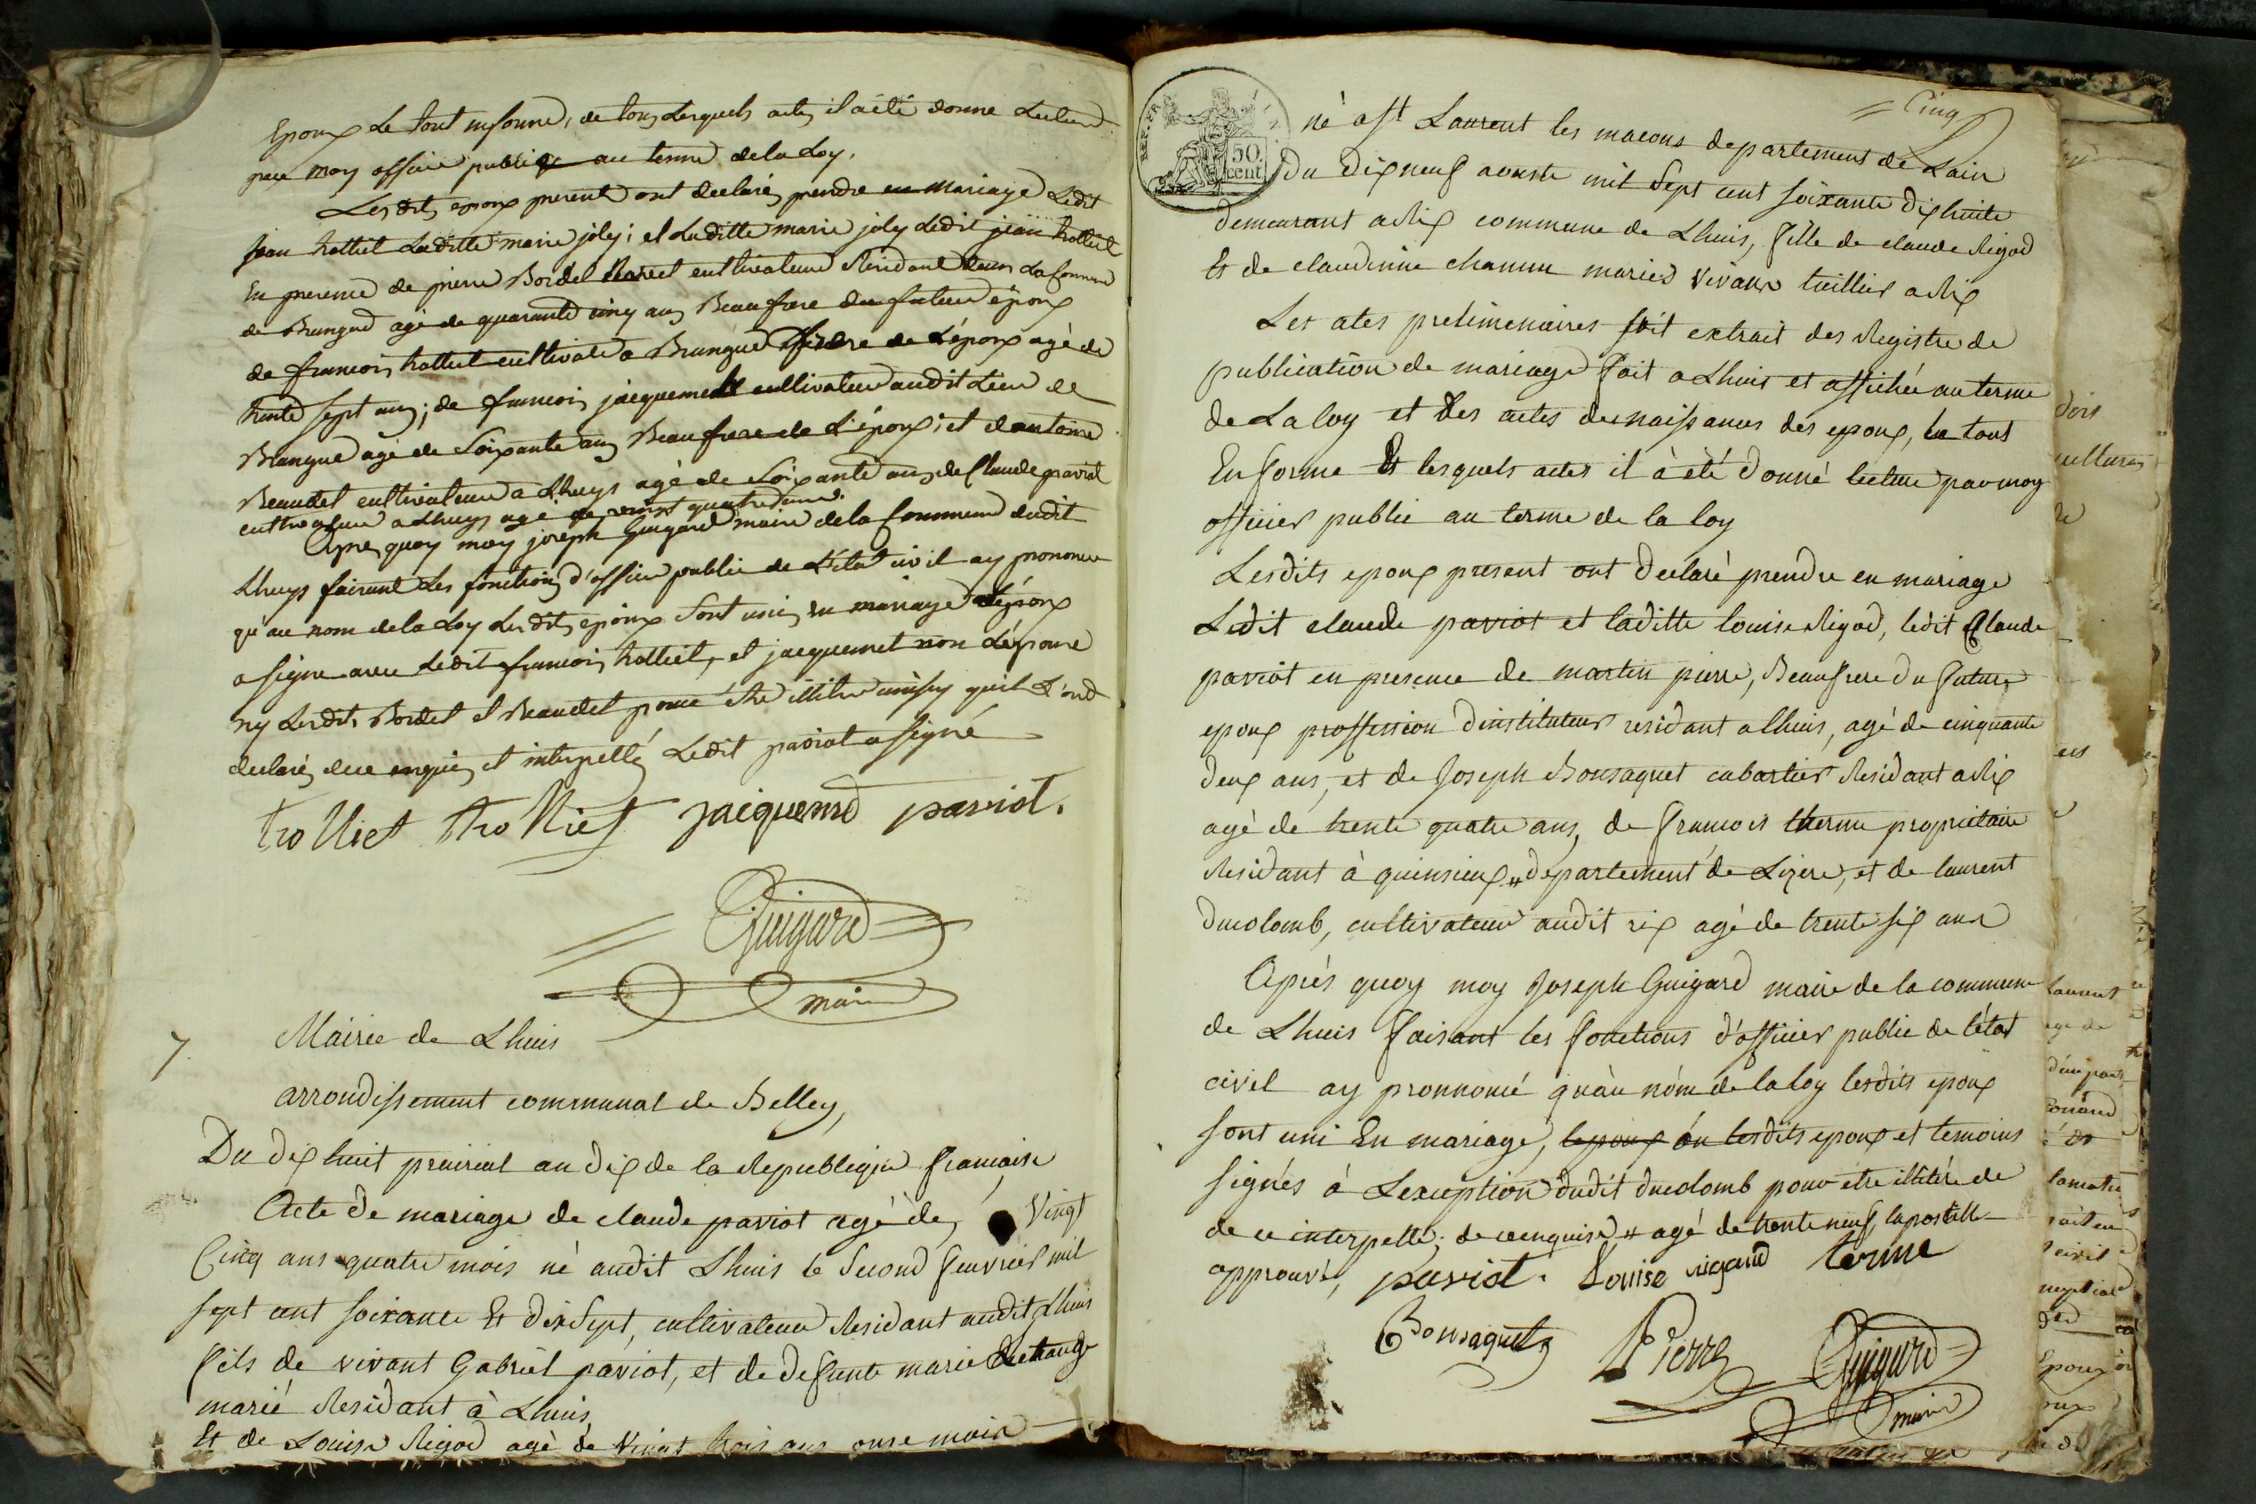 Epoux Le tout en forme, de tous Lesquels actes il a été donné Lecture
par moy officier publique au terme de la Loy.
Lesdits epoux present ont declaré prendre en Mariage Ledit
jean trolliet Laditte marie joly; et Laditte marie joly Ledit jean trolliet
En presence de pierre Bordel cultivateur Residant dans La Commune
de Brangue agé de quarante cinq ans Beaufrere du futeur époux
de francois trolliet cultivateur a Brangue frere de L'époux agé de
trente sept ans; de francois jacquemet cultivateur audit Lieu de
Brangue agé de Soixante ans Beaufrere de L'époux; et d'antoine
Beaudet cultivateur a Lhuys agé de Soixante ans, de Claude paviot
cultivateur a Lhuys agé de vingt quatre ans.
Apres quoy moy joseph Guigard maire de la Commune dudit
Lhuys faisant Les fonctions d'officier public de L'état civil ay prononcé
qu'au nom de la Loy Lesdits epoux Sont unis en mariage L'époux
a signé avec Ledit francois trolliet, et jacquemet non L'épouse
ny Lesdits Bordel et Beaudet pour être illitere ainsy qu'il L'ond
declaré de ce enquis et interpellé Ledit paviot a signé
trolliet trolliet jacquemd paviot.
Guigard
maire
7.
Mairie de Lhuis
arrondissement communal de Belley,
Du dix huit prairial an dix de la Republique francaise
Acte de mariage de claude paviot agé de, Vingt
Cinq ans quatre mois né audit Lhuis le Second fevrier mil
sept cent soixante Et dix Sept, cultivateur Residant audit Lhuis
fils de vivant Gabriel paviot, et de defunte marie
marié Residant à Lhuis,
Et de Louise Rigod agé de Vingt trois ans onse mois
= Cinq
né a st Laurent les macons departement de Lain
du dix neuf aouste mil Sept cent soixante dix huite
demeurant a Rix commune de Lhuis, fille de claude Rigod
Et de claudinne chanun mariés vivans tuillier a Rix
Les ates prelimenaires soit extrait des Registre de
publication de mariage fait a Lhuis et affichée au terme
de La loy et des actes de naissances des epoux, le tout
En forme Et lesquels actes il à été donné lecture par moy
officier public au terme de la loy
Lesdits epoux present ont declaré prendre en mariage
Ledit claude paviot et laditte louise Rigod, ledit Claude
paviot en presence de martin pierre, Beaufrere du futur
epoux proffession d'instituteur residant a lhuis, agé de cinquante
deux ans, et de Joseph Bonsaquet cabartier Residant a Rix
agé de trente quatre ans, de francois therme proprietaire
Residant à quinsieux # departement de Lizere, et de laurent
ducolomb, cultivateur audit rix agé de trente six ans
Aprés quoy moy Joseph Guigard maire de la commune
de Lhuis faisant les fonctions d'officier public de l'état
civil ay pronnoncé qu'au nóm de la loy lesdits epoux
sont uni En mariage, lepoux ón lesdits epoux et temoins
signés á Lexception dudit ducolomb pour etre illitére de
de ce interpellé; de ce enquise # agé de trente neuf, lapostille
approuvé, paviot. Louise rigaud terme
Bonsaquet Pierre Guigard
maire
50.
cent